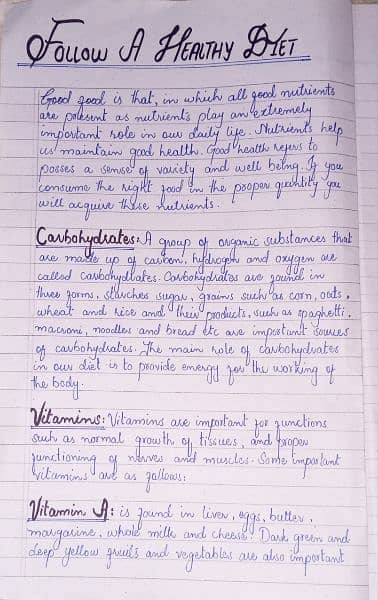 Follow A Healthy Diet
Good food is that, in which all good nutrients
are present as nutrients play an extremely
important role in our daily life. Nutrients help
us maintain good health. Good health refers to
posses a sense of variety and well being. If you
consume the right food in the proper quantity you
will acquire these nutrients.
Carbohydrates: A group of organic substances that
are made up of carbon, hydrogen and oxygen are
called carbohydrates. Carbohydrates are found in
three forms, starches sugar, grains such as corn, oats,
wheat and rice and their products, such as spaghetti,
macroni, noodles and bread etc are important sources
of carbohydrates. The main role of carbohydrates
in our diet is to provide energy for the working of
the body.
Vitamins: Vitamins are important for functions
such as normal growth of tissues, and proper
functioning of nerves and muscles. Some important
vitamins are as follows:
Vitamin A: is found in liver, eggs, butter,
margarine, whole milk and cheese. Dark green and
deep yellow fruits and vegetables are also important